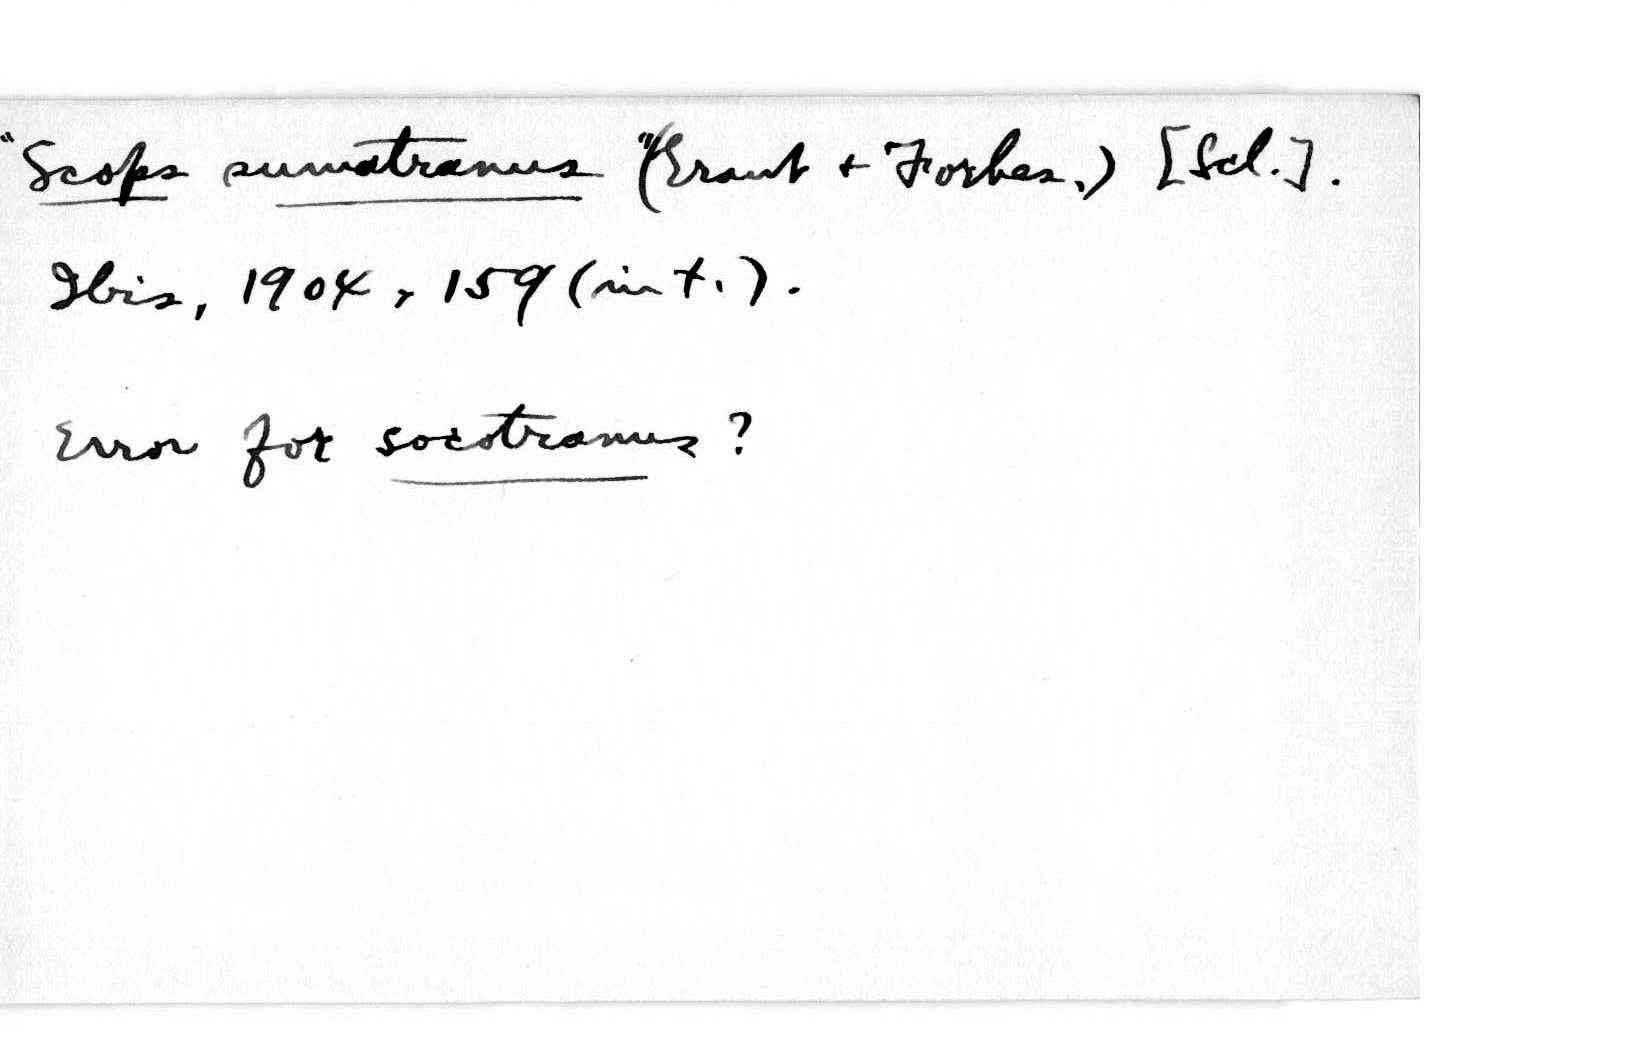 "Scops sumatranus" (Grant + Forbes.) [Scl.].
Ibis, 1904, 159 (in t.).
Error for socotranus?